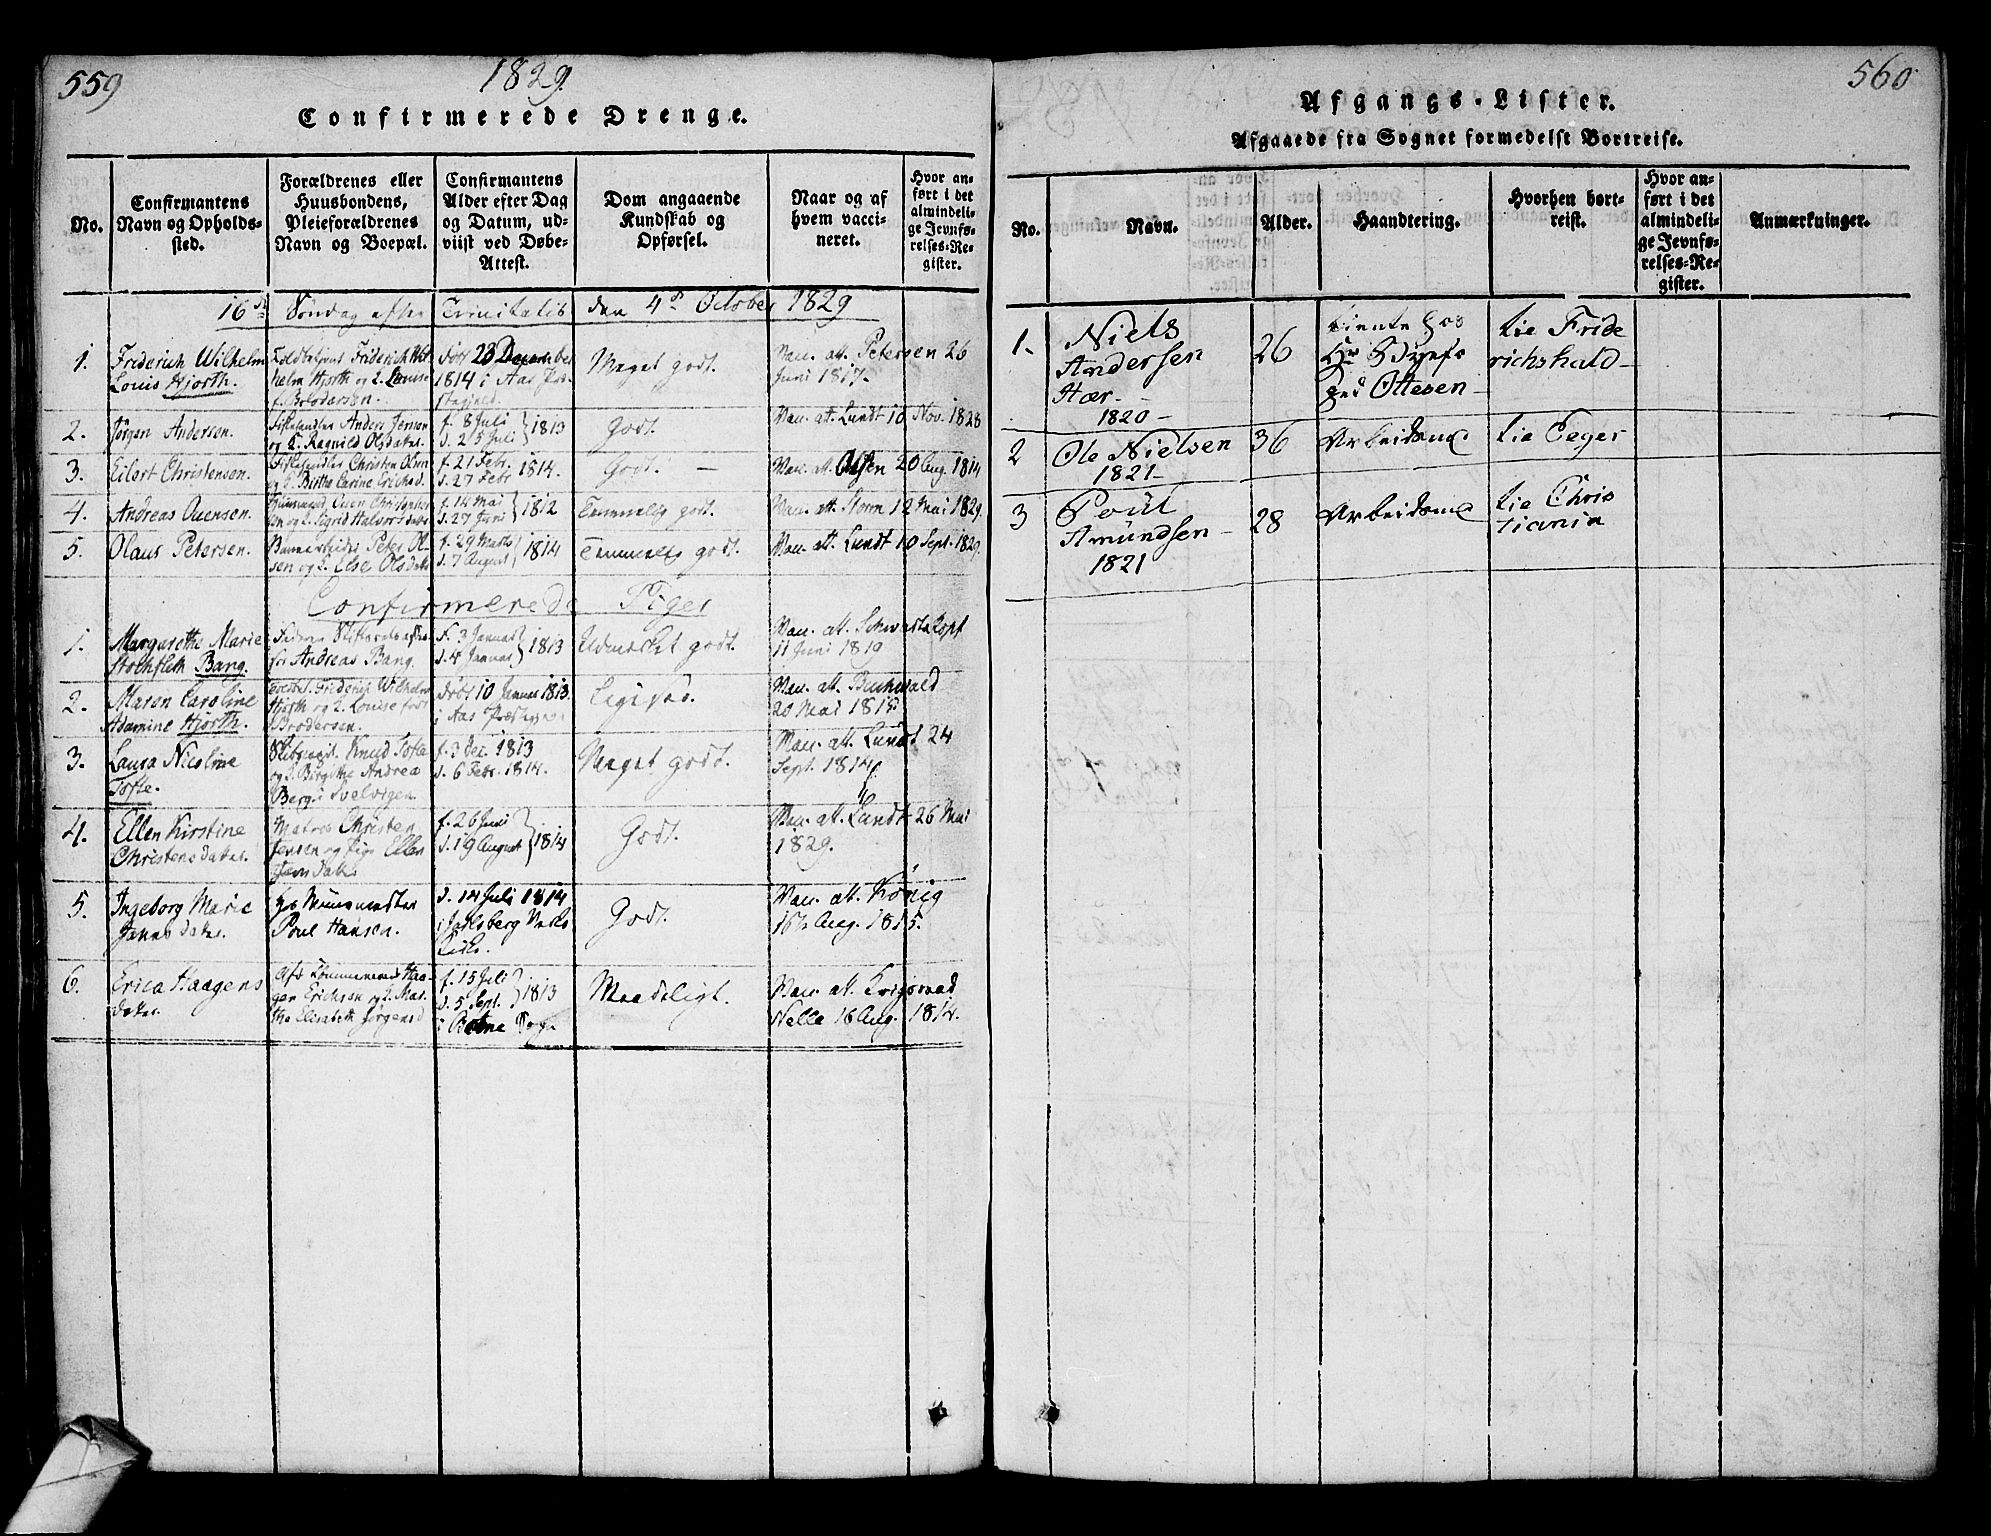 559
1829
Confirmerede Drenge.
No.
Confirmantens Navn og Opholds-sted.
Forældrenes eller Huusbondens, Pleieforældrenes Navn og Boepæl.
Confirmantens Alder efter Dag og Datum, ud-viist ved Døbe-Attest.
Dom angaaende Kundskab og Opførsel.
Naar og af hvem vacci-neret.
Hvor an-ført i det almindeli-ge Jevnfø-relses-Re-gister.
16de Søndag efter Trinitatis den 4de October 1829
1.
Friderich Wilhelm
Louis Hjorth.
Friderich Wil-
helm Hjorth og L. Louise
f. Brodersen.
Døbt 28 December
1814 i Aas Præ-
stegjeld.
Meget godt.
Vac. att. Petersen 26
Juni 1817.
2.
Jørgen Andersen.
Anders Jensen
og L. Ragnild Olsdatter
f. 8 Juli
d. 25 Juli } 1813
Godt.
Vac. att. Lundt 10 Nov. 1828
3.
Eilert Christensen.
Christen Olsen
og L. Birthe Carine Ericksd.
f. 21 Febr.
d. 27 Febr. 1814.
Godt. —
Vac. att. Olsen 20 Aug. 1814
4.
Andreas Ouensen.
Huusmand Ouen Christen-
sen og L. Sigrid Halvorsdatter
f. 14 Mai
d. 27 Juni } 1812
Temmelig godt.
Vac. att. Storm 12 Mai 1829.
5.
Olaus Petersen.
Peter Ol-
sen og L. Else Olsdatter
f. 29 Marts
d. 7 August } 1814
Temmelig godt.
Vac. att. Lundt 10 Sept. 1829
Confirmerede Piger
1.
Margarethe Marie
Stockfleth Bang.
Andreas Bang.
f. 3 Januar
d. 4 Januar } 1813
Udmærket godt.
Vac. att. Schwartskopf
11 Juni 1819
2.
Maren Caroline
Adamine Hjorth.
Friderich Wilhelm
Hjorth og L. Louise født
Brodersen.
Døbt 10 Januar 1813.
i Aas Præstegjeld
Ligesaa.
Vac. att. Buchwald
20 Mai 1818
3.
Laura Nicoline
Tofte.
Knud Tofte
og L. Birgithe Andrea
Berg i Svelvigen
f. 3 Dec. 1813
d. 6 Febr. 1814.
Meget godt.
Vac. att. Lundt 24
Sept. 1814
4.
Ellen Kirstine
Christensdatter.
Matros Christen
Jensen og Pige Ellen
Jensdatter
f. 26 Juli
d. 19 August } 1814
Godt.
Vac. att. Lundt 26 Mai
1829.
5.
Ingeborg Marie
Jansdatter.
hos Muurmester
Poul Hansen.
d. 14 Juli 1814
i Jarlsberg Værks
Kirke.
Godt.
Vac. att. König
16de Aug. 1815.
6.
Erica Haagens
datter.
Haa-
gen Erichsen og L. Mar-
the Elisabeth Jørgensd
f. 15 Juli
d. 5 Sept. } 1813
i Botne Sogn
Maadeligt.
Vac. att.
Nelle 16 Aug. 1814.
560
Afgangs-Lister.
Afgaaede fra Sognet formedelst Bortreise.
No.
Navn.
Alder.
Haandtering.
Hvorhen bort-reist.
Hvor an-ført i det almindeli-ge Jevnfø-relses-Re-gister.
Anmærkninger.
1.
Niels
Andersen
Hær. -
1820 -
26
tiente hos
Hr
Ottesen -
til Fride
richshald -
2
Ole Nielsen
1821 -
36
Arbeidsmd
til Eeger
3
Poul
Amundsen -
1821
28
Arbeidsmd
til Chris
tiania